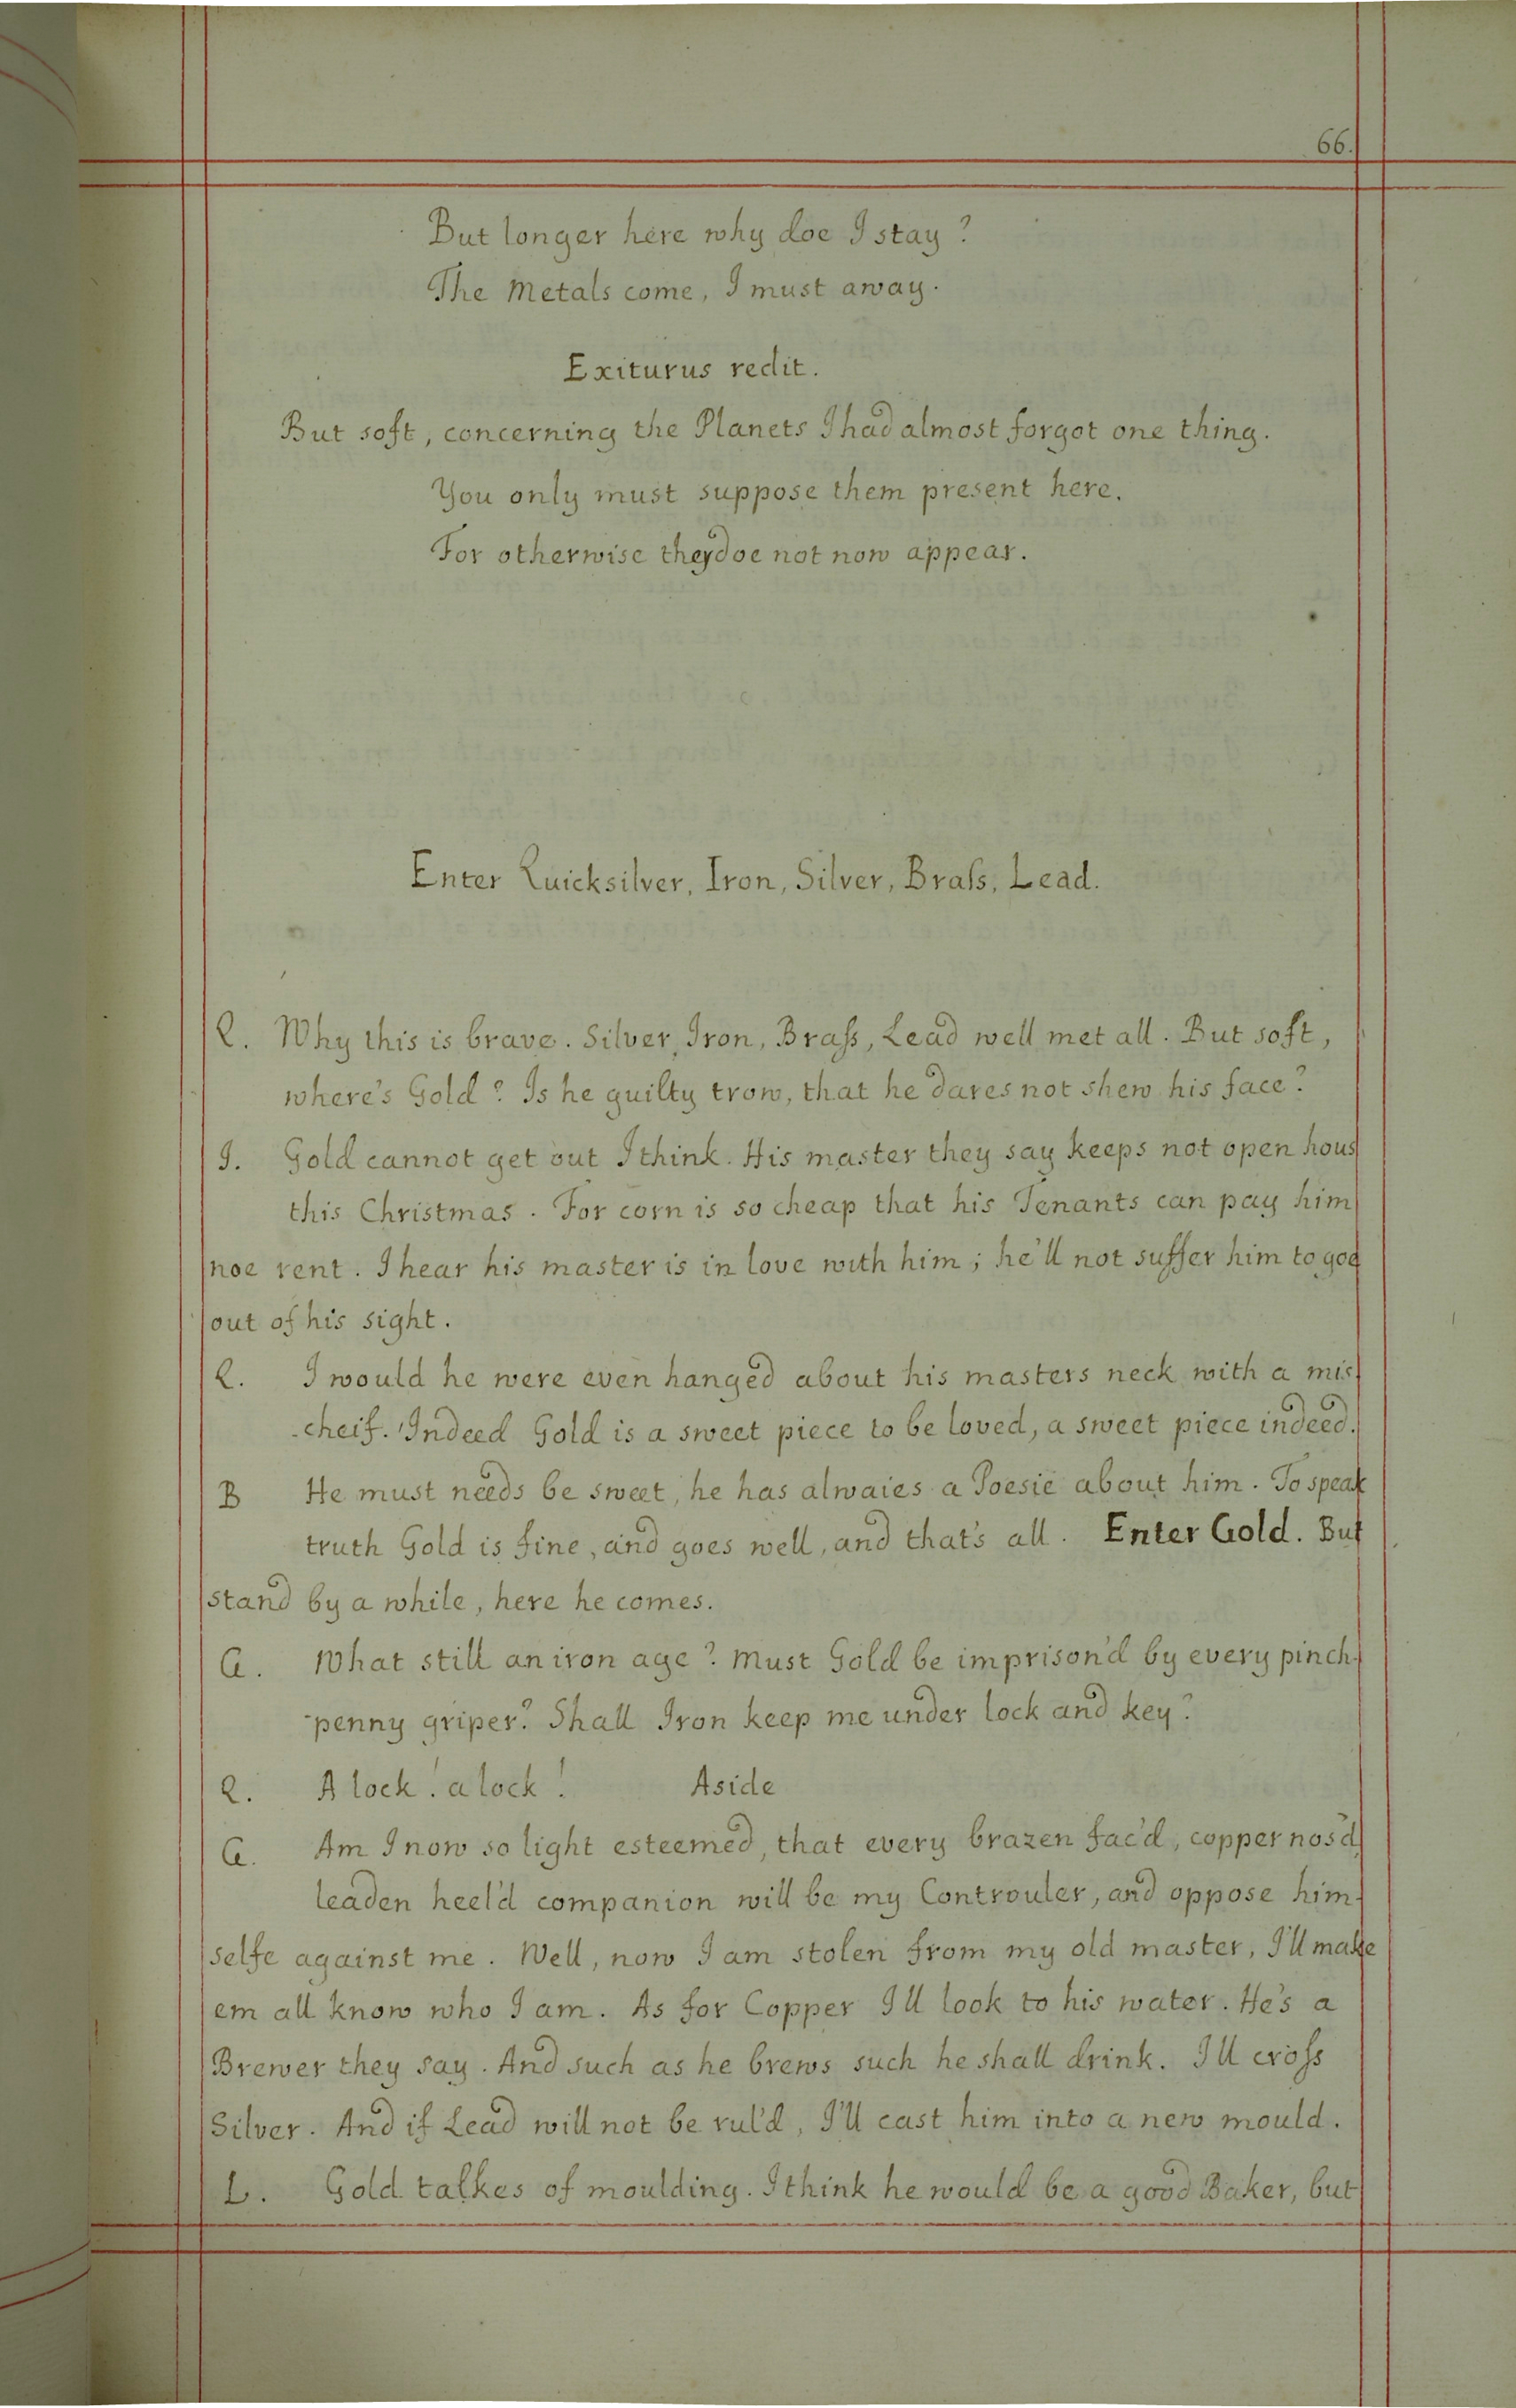 66.
But longer here why doe I stay?
The Metals come, I must away.
Exiturus redit.
But soft, concerning the Planets I had almost forgot one thing.
You only must suppose them present here.
For otherwise they doe not now appear.
Enter Quicksilver, Iron, Silver, Braſs, Lead.
Q. Why this is brave. Silver, Iron, Braſs, Lead well met all. But soft,
where's Gold? Is he guilty trow, that he dares not shew his face?
I. Gold cannot get out I think. His master they say keeps not open hous
this Christmas. For corn is so cheap that his Tenants can pay him
noe rent. I hear his master is in love with him; he'll not suffer him to goe
out of his sight.
Q. I would he were even hanged about his masters neck with a mis
-cheif. Indeed Gold is a sweet piece to be loved, a sweet piece indeed.
B He must needs be sweet, he has alwaies a Poesie about him. To speak
truth Gold is fine, and goes well, and that's all. Enter Gold. But
stand by a while, here he comes.
G. What still an iron age? Must Gold be imprison'd by every pinch-
-penny griper? Shall Iron keep me under lock and key?
Q. A lock! a lock! Aside
G. Am I now so light esteemed, that every brazen fac'd, copper nos'd,
leaden heel'd companion will be my Controuler, and oppose him-
selfe against me. Well, now I am stolen from my old master, I'll make
em all know who I am. As for Copper I'll look to his water. He's a
Brewer they say. And such as he brews such he shall drink. I'll croſs
Silver. And if Lead will not be rul'd, I'll cast him into a new mould.
L. Gold talkes of moulding. I think he would be a good Baker, but